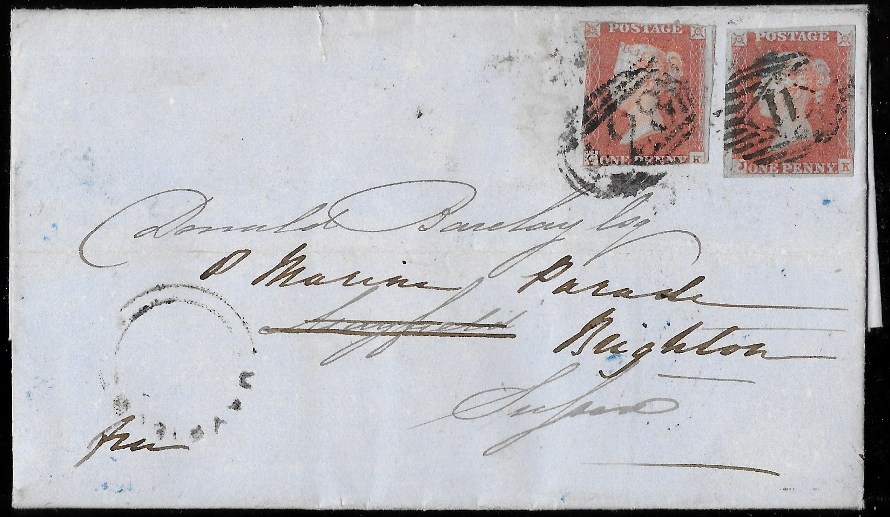 POSTAGE POSTAGE
ONE PENNY K J ONE PENNY K
Donald Barclay Esq
8 Marine Parade
Mayfield
Brighton
Sussex